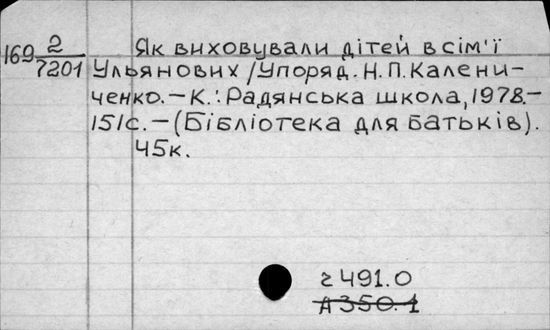 169 2/7201
Як виховували дітей в сім'ї
Ульянових / Упоряд. Н. П. Калени-
ченко. – К.: Радянська школа, 1978. –
151с. – (Бібліотека для батьків).
45к.
г 491.0
А 350.1